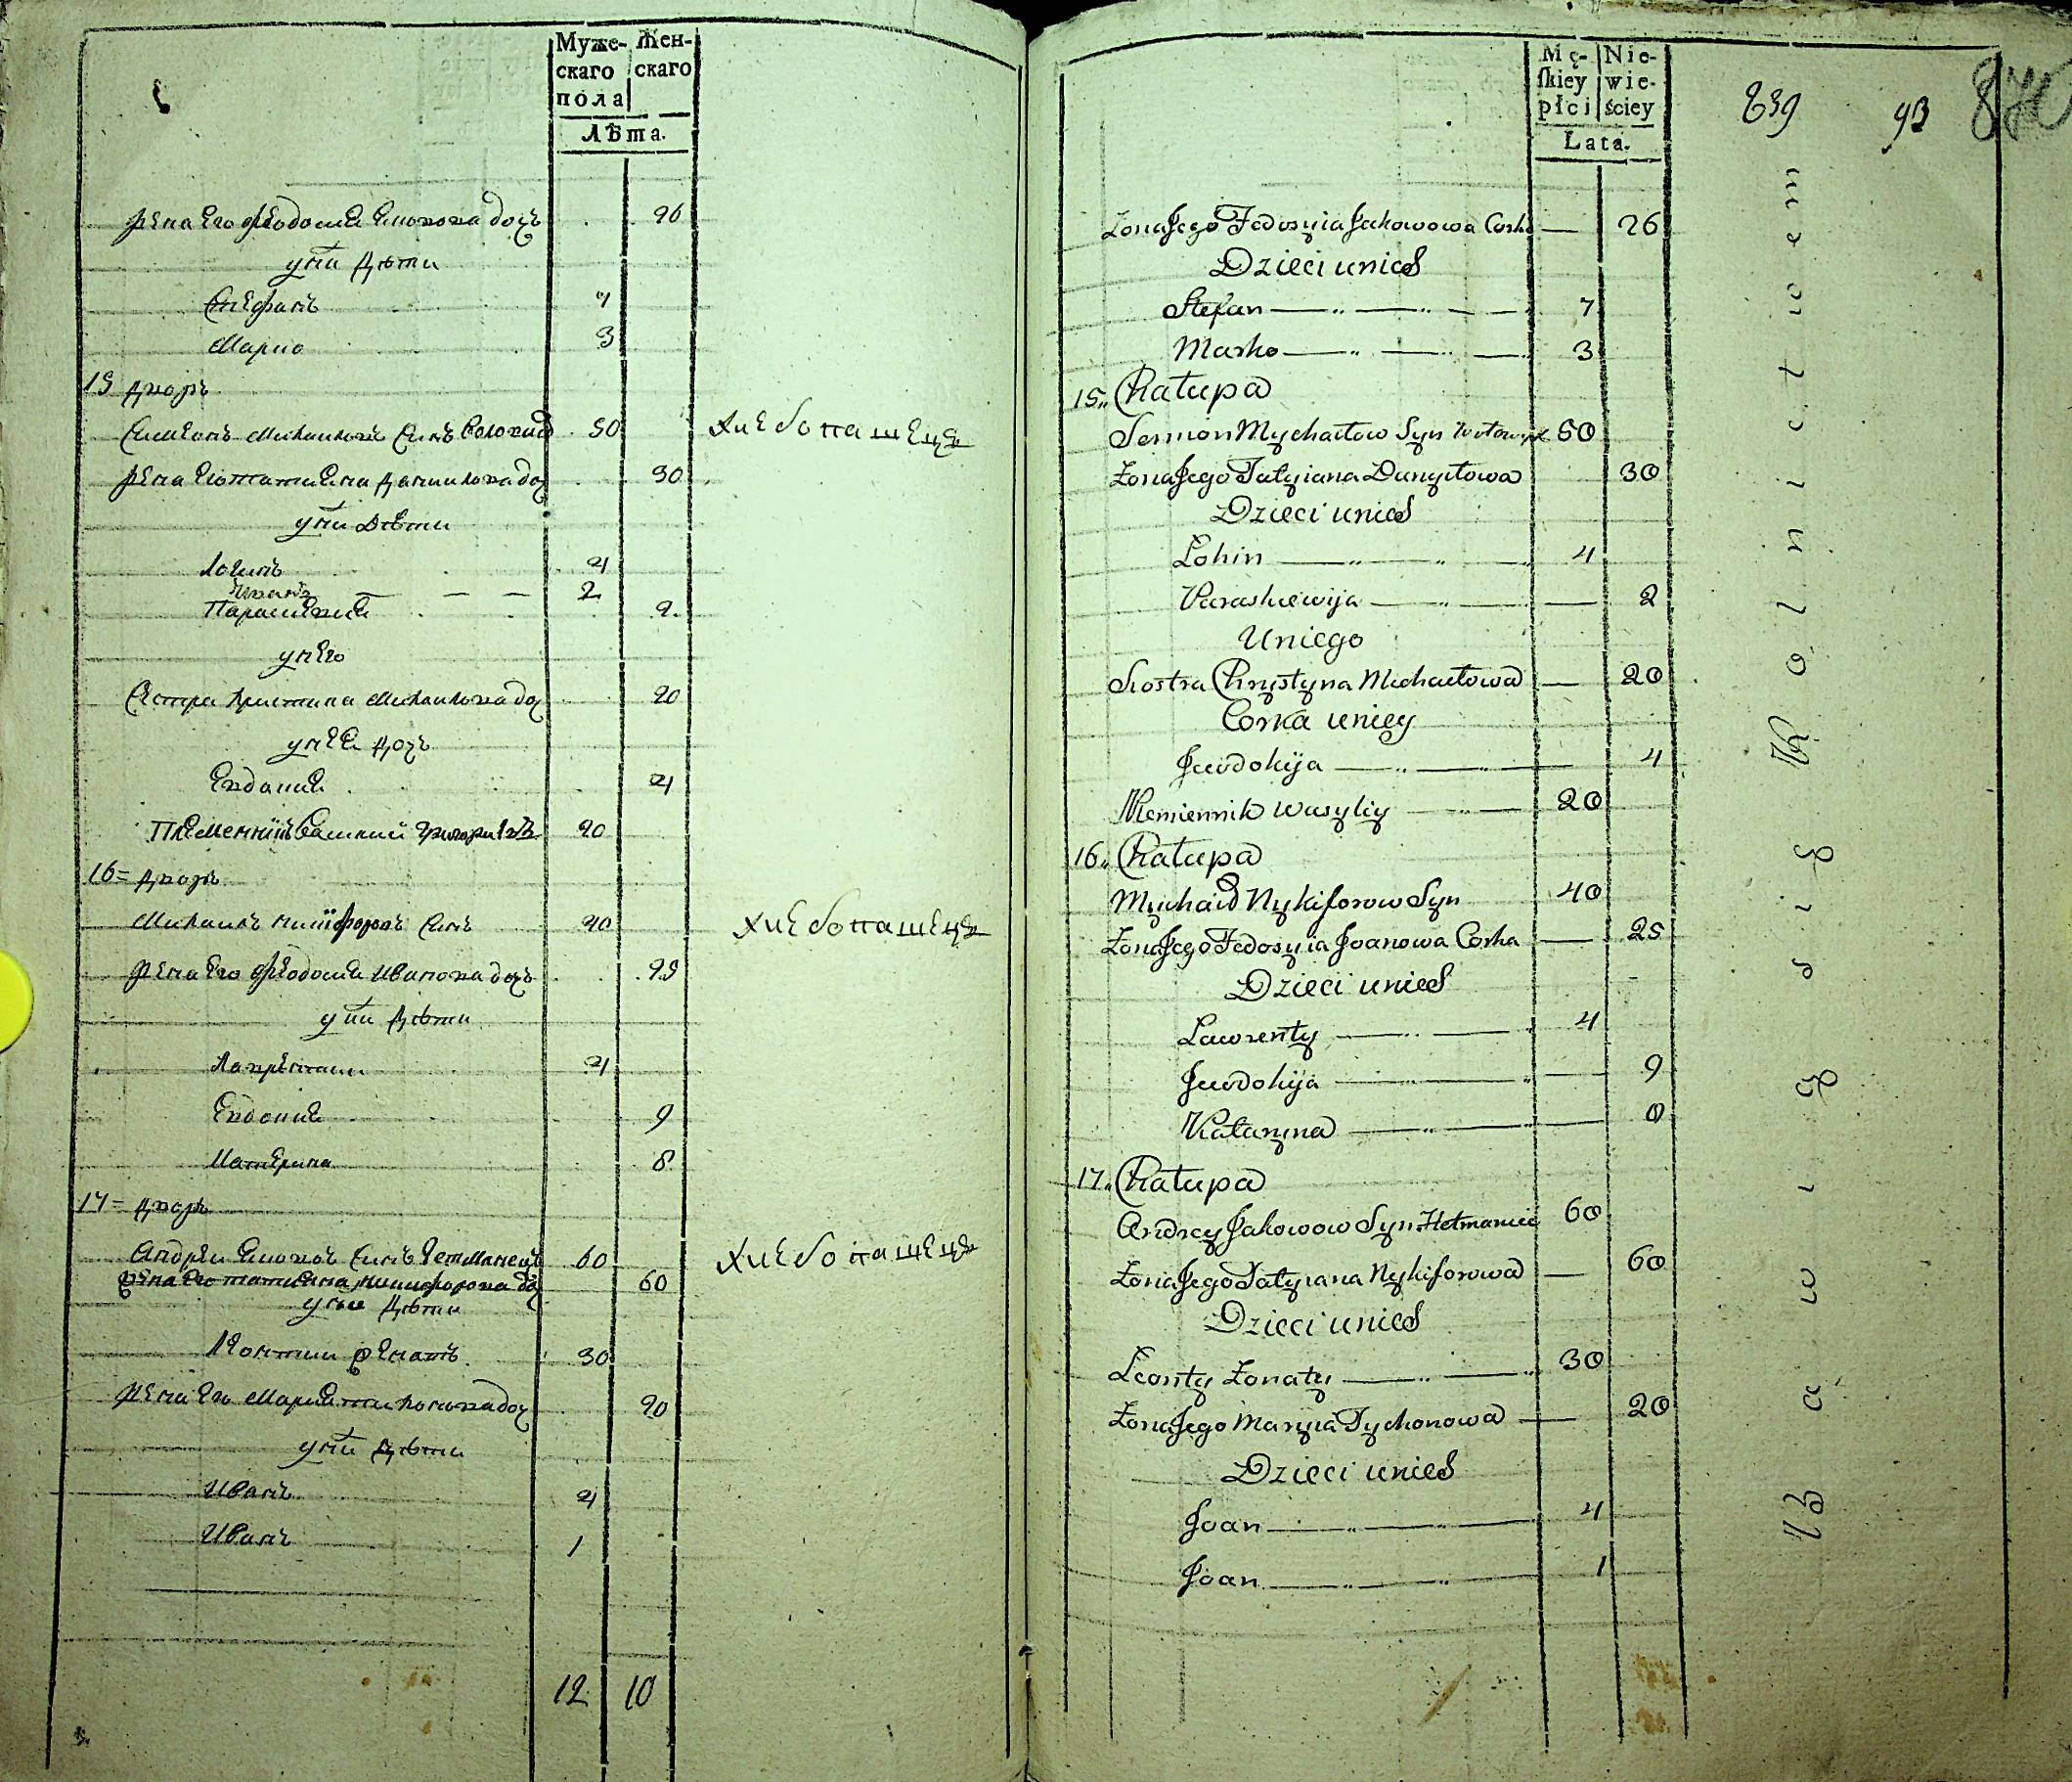 Муже-
скаго
пола
Жен-
скаго
Лѣта.
жена его Феодосия Яковова дочь 26
у них дѣти
Стефанъ 7
Марко 3
15 дворъ
Симеонъ Михайловъ синъ 50 хлебопашецъ
жена его татияна Данилова доч 30
у них дѣти
Логинъ 4
Иванъ — — — 2
Параскевия 2
у него
Сестра Христина Михайлова доч 20
у нея дочъ
Евдокия 4
Племенникъ Василий Григориевъ 20
16= дворъ
Михаилъ Никифоровъ синъ 40 хлебопашецъ
жена его Феодосия Иванова дочъ 25
у них дѣти
Лаврентий 4
Евдокия 9
Катерина 8
17= дворъ
Андрей Яковов синъ Гетманецъ 60 хлебопашецъ
жена его татияна Никифорова до 60
у них дѣти
Леонтий женатъ 30
жена его Мария тихонова доч 20
у них дѣти
Иванъ 4
Иванъ 1
12 10
Mę-
ſkiey
płci
Nie-
wie-
ściey
Lata.
839 93 870
Zona Jego Fedosyia Jakowowa Corka — 26
Dzieci unich
Stefan — „ — „ — — 7
Marko — „ — „ — 3
15„ Chałupa
Semion Mychaiłow Syn 50
Zona Jego Tatyiana Danyłowa 30
Dzieci unich
Lohin — „ — „ — 4
Paraskiewija — „ — — 2
Uniego
Siostra Chrystyna Michaiłowa — 20
Corka uniey
Jewdokija — „ — — 4
Plemiennik Wasyliy — — 20
16„ Chałupa
Mychaiło Nykiforow Syn 40
Zona Jego Fedosyia Joanowa Corka — 25
Dzieci unich
Lawrenty — „ — 4
Jewdokija — „ — 9
Katarzyna — „ — — 8
17„ Chałupa
Andrey Jakowow Syn Hetmaniec 60
Zona Jego Tatyiana Nykiforowa — 60
Dzieci unich
Leonty Zonaty — „ — „ 30
Zona Jego Maryia Tychonowa — 20
Dzieci unich
Joan — „ — „ — 4
Joan — „ — „ — 1
Bawią się Rólnictwem